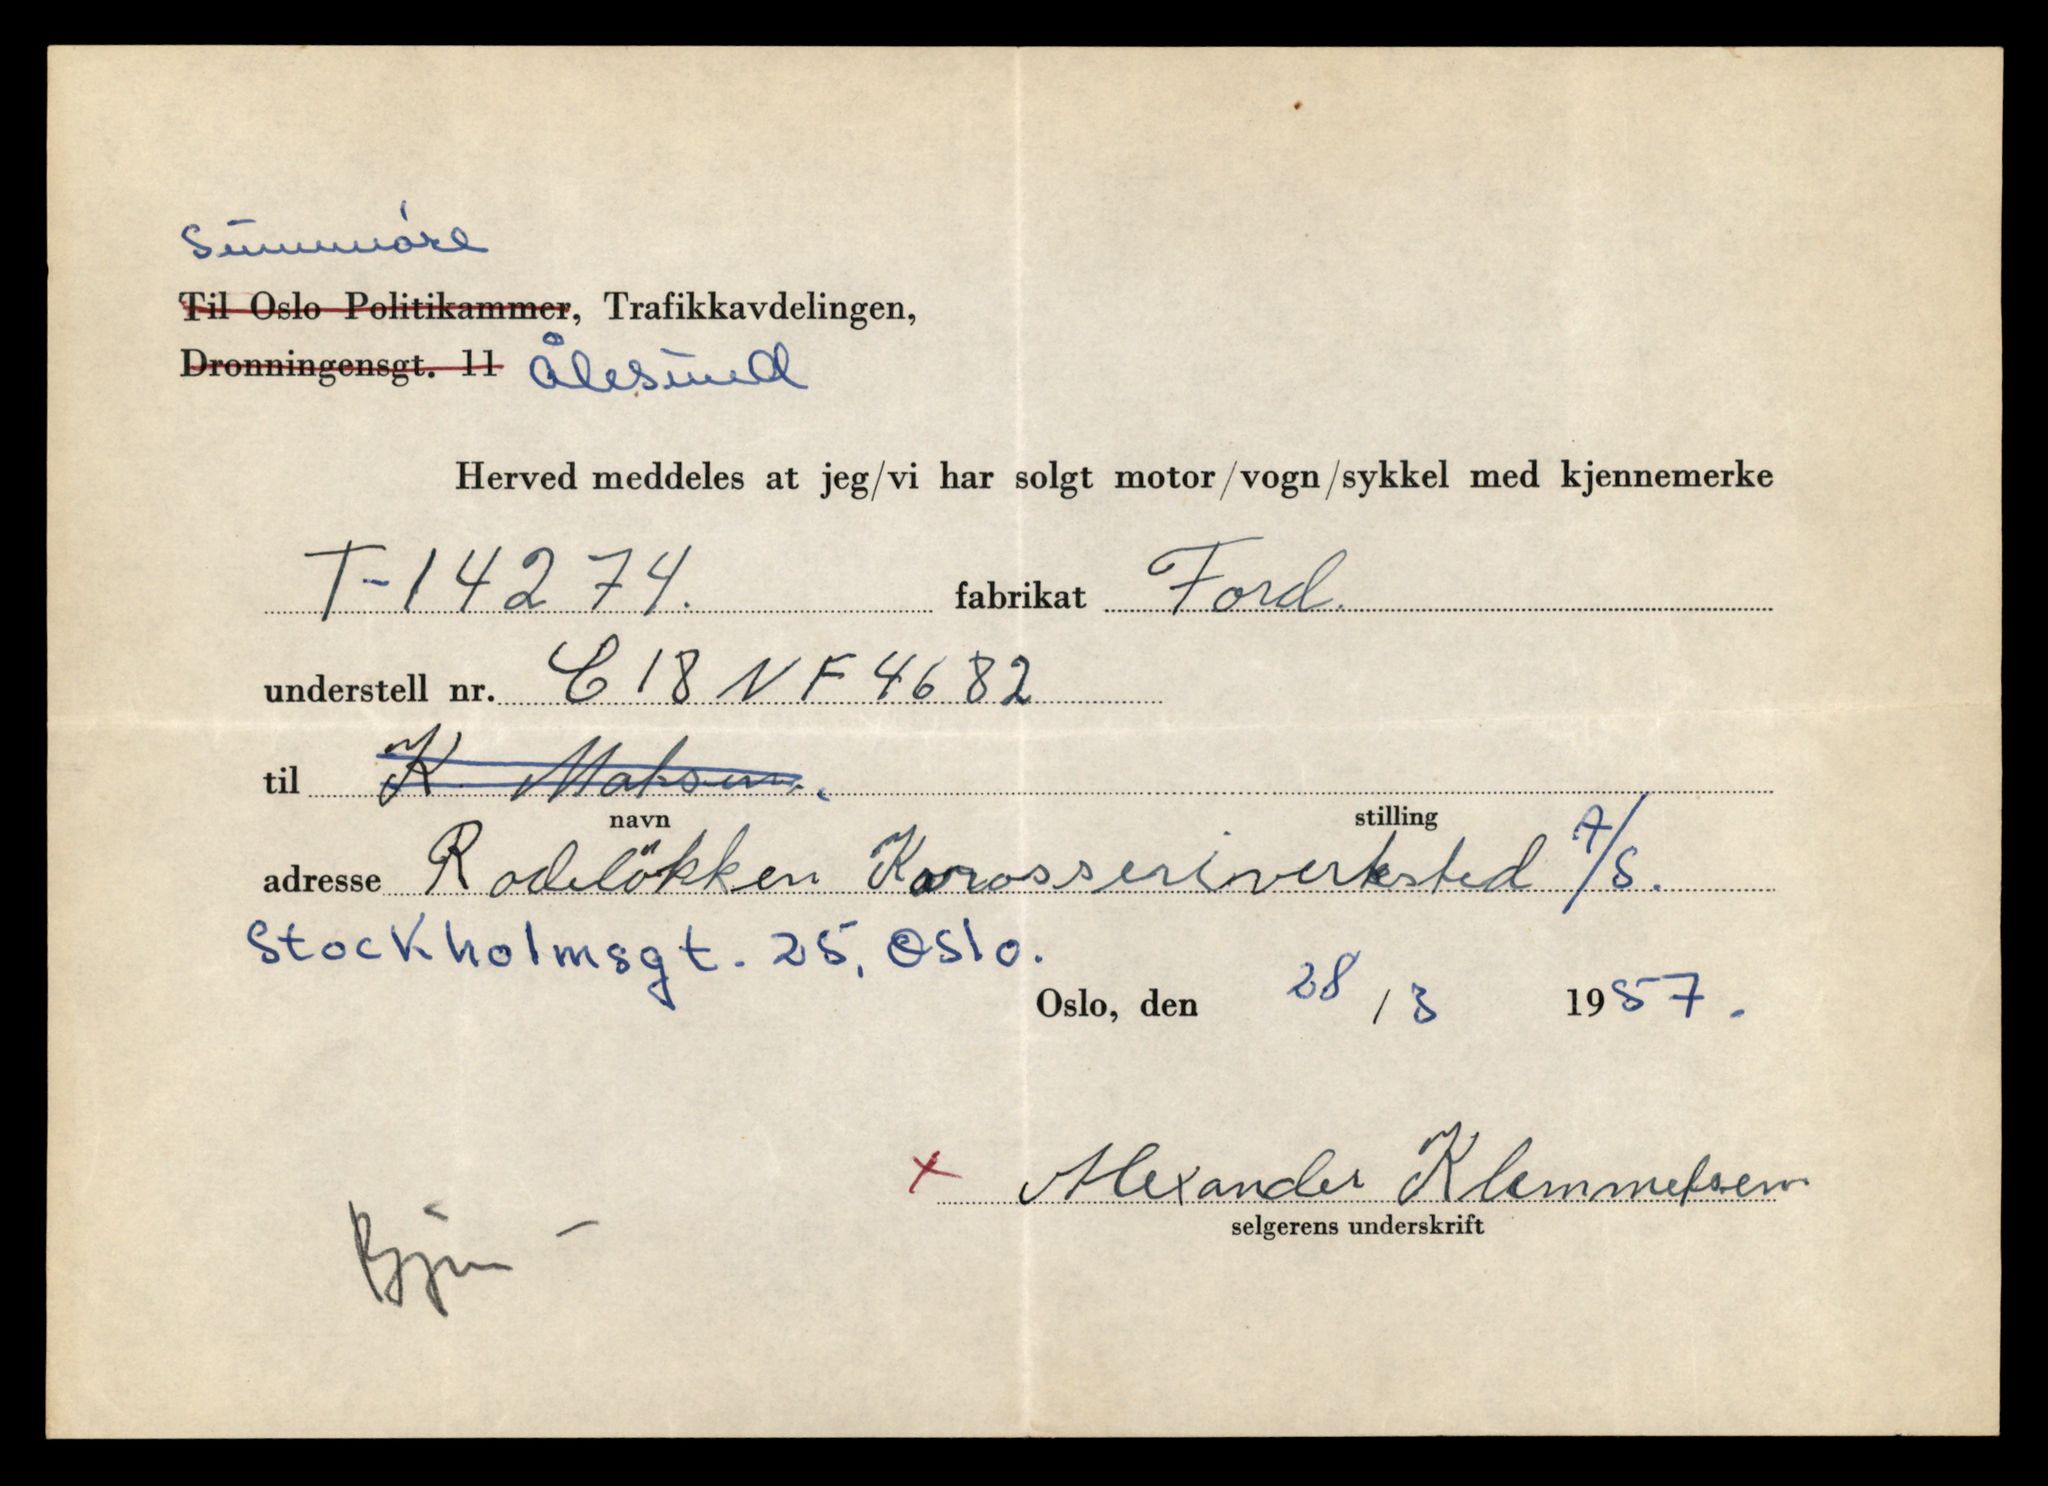 Sunnmöre
Til Oslo Politikammer, Trafikkavdelingen,
Dronningensgt. 11 Ålesund
Herved meddeles at jeg/vi har solgt motor/vogn/sykkel med kjennemerke
T-14274. fabrikat Ford.
understell nr. C18NF4682
til K.
navn stilling
adresse Rodelökken Karosseriverksted A/S.
Stockholmsgt. 25, Oslo.
Oslo, den 28/3 1957.
x Alexander Klemmetsen
selgerens underskrift